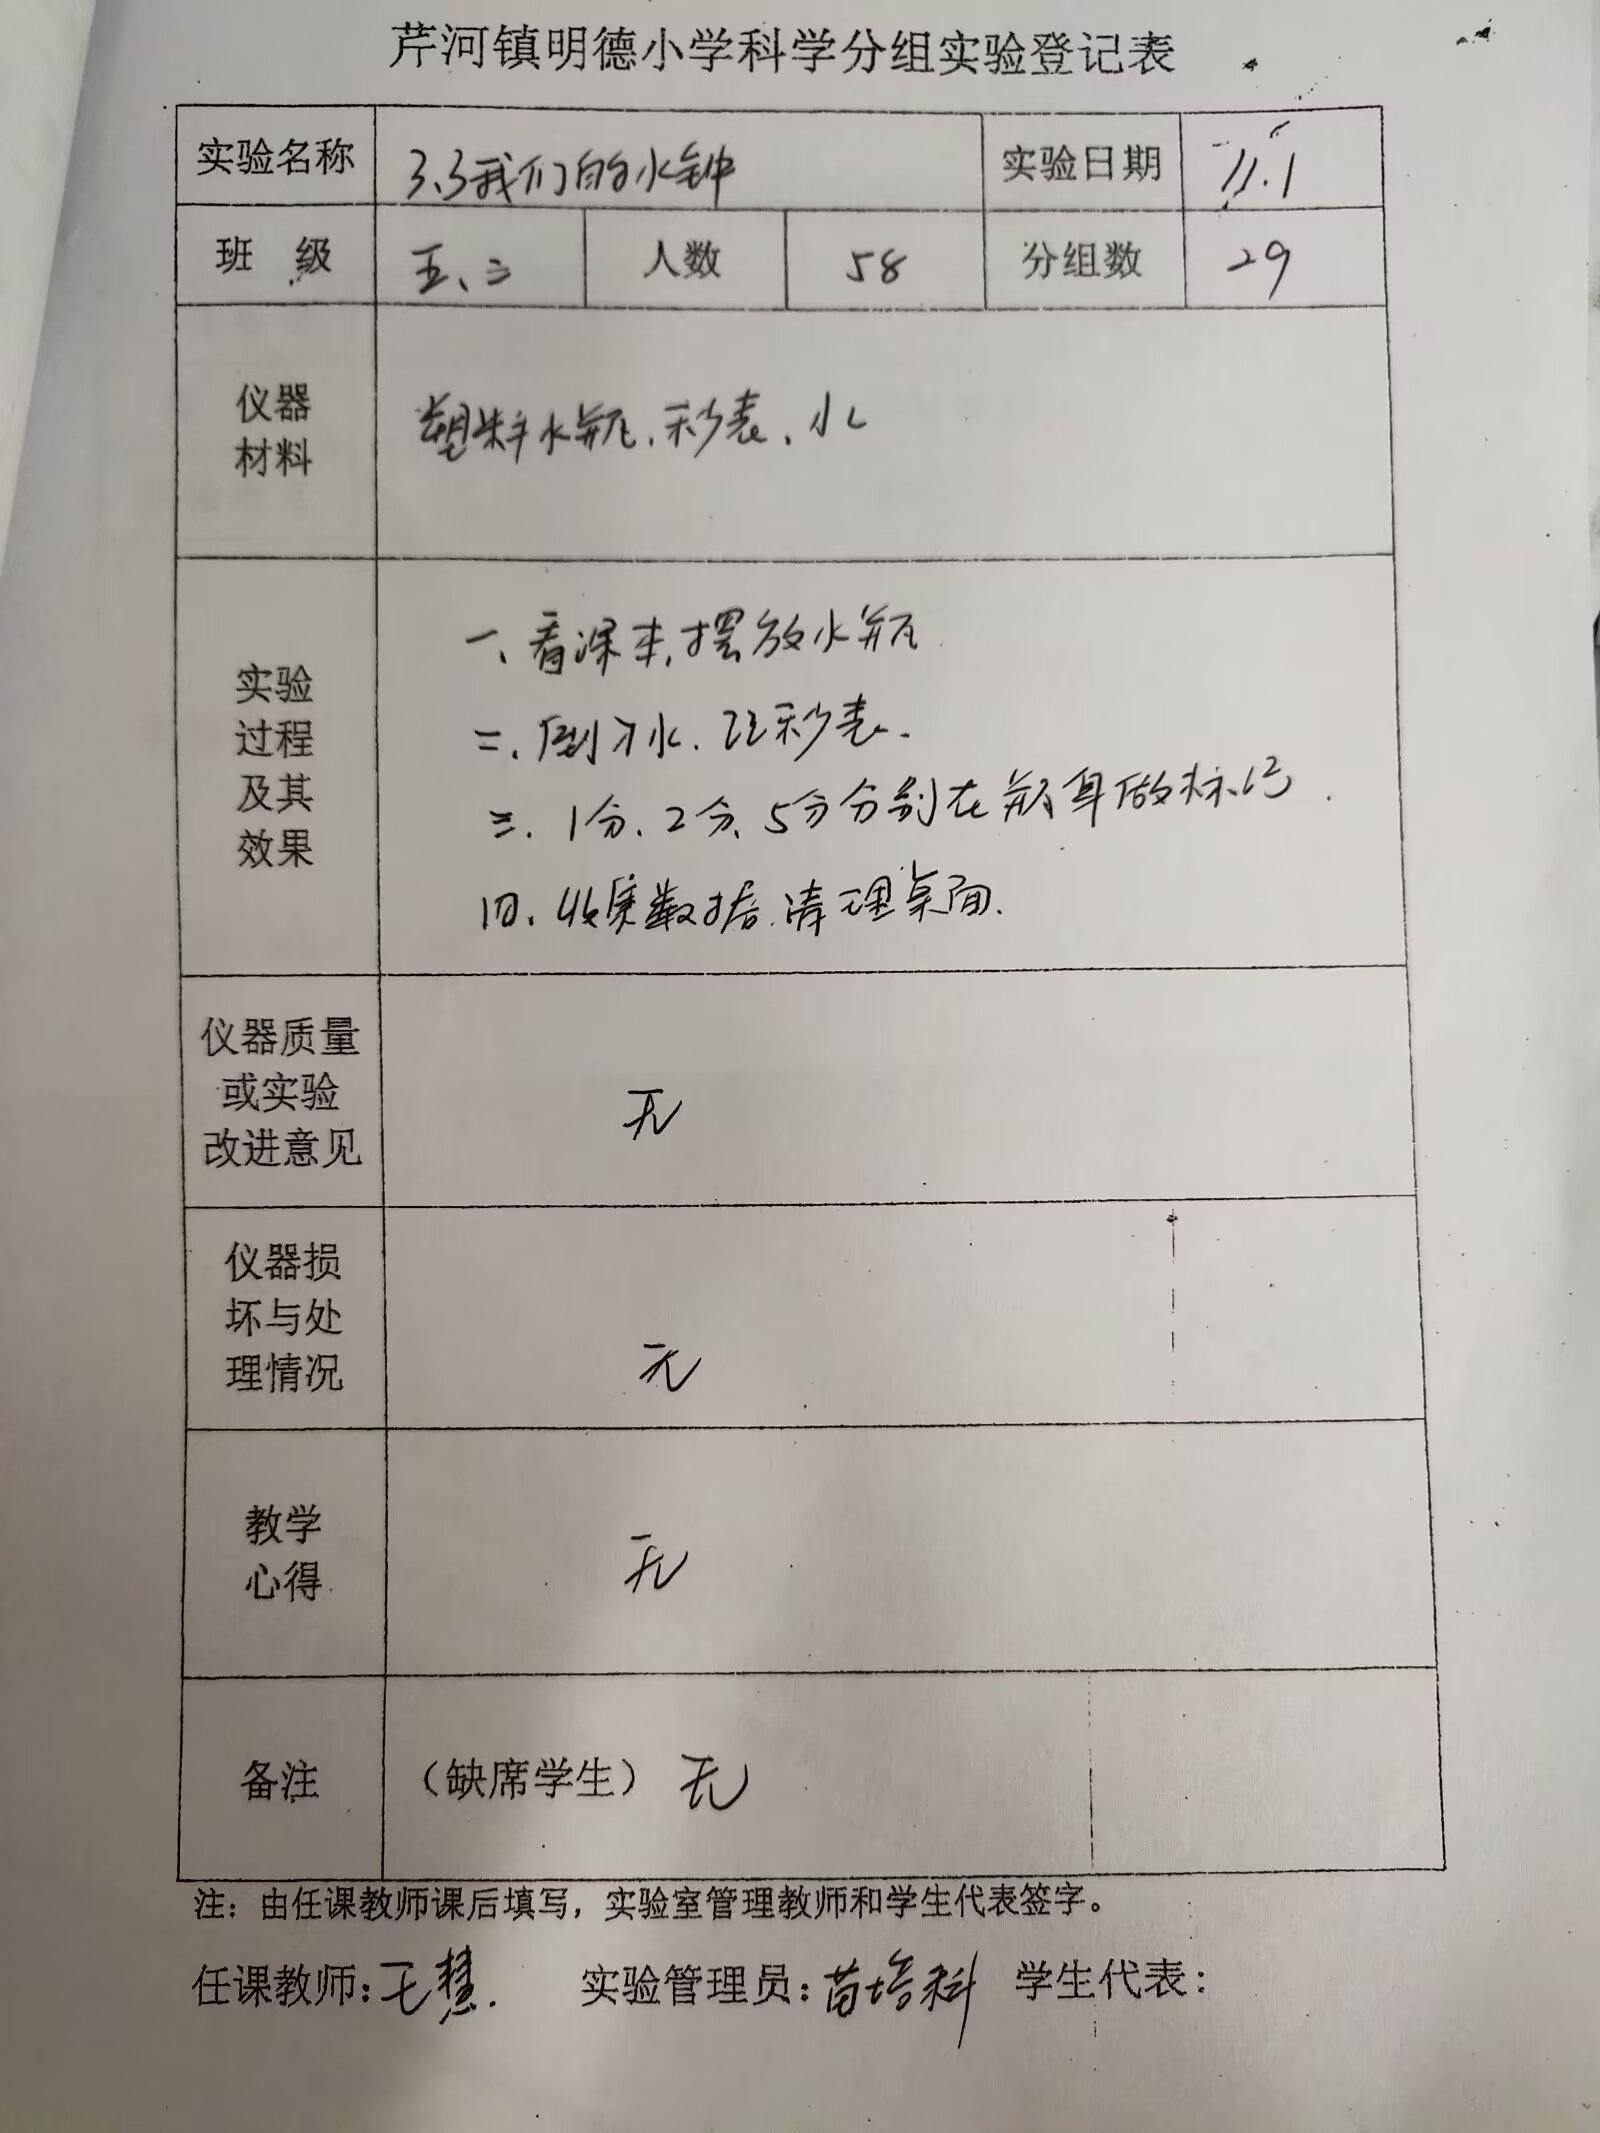 芹河镇明德小学科学分组实验登记表
实验名称 3.3我们的水钟 实验日期 11.1
班 级 五、二 人数 58 分组数 29
仪器
材料
塑料水瓶、秒表、水
实验
过程
及其
效果
一、看课本,摆放水瓶
二、倒入水、记秒表.
三、1分、2分、5分分别在瓶身做标记.
四、收集数据.清理桌面.
仪器质量
或实验
改进意见
无
仪器损
坏与处
理情况
无
教学
心得
无
备注 （缺席学生） 无
注：由任课教师课后填写，实验室管理教师和学生代表签字。
任课教师: 王慧. 实验管理员: 苗培科 学生代表：